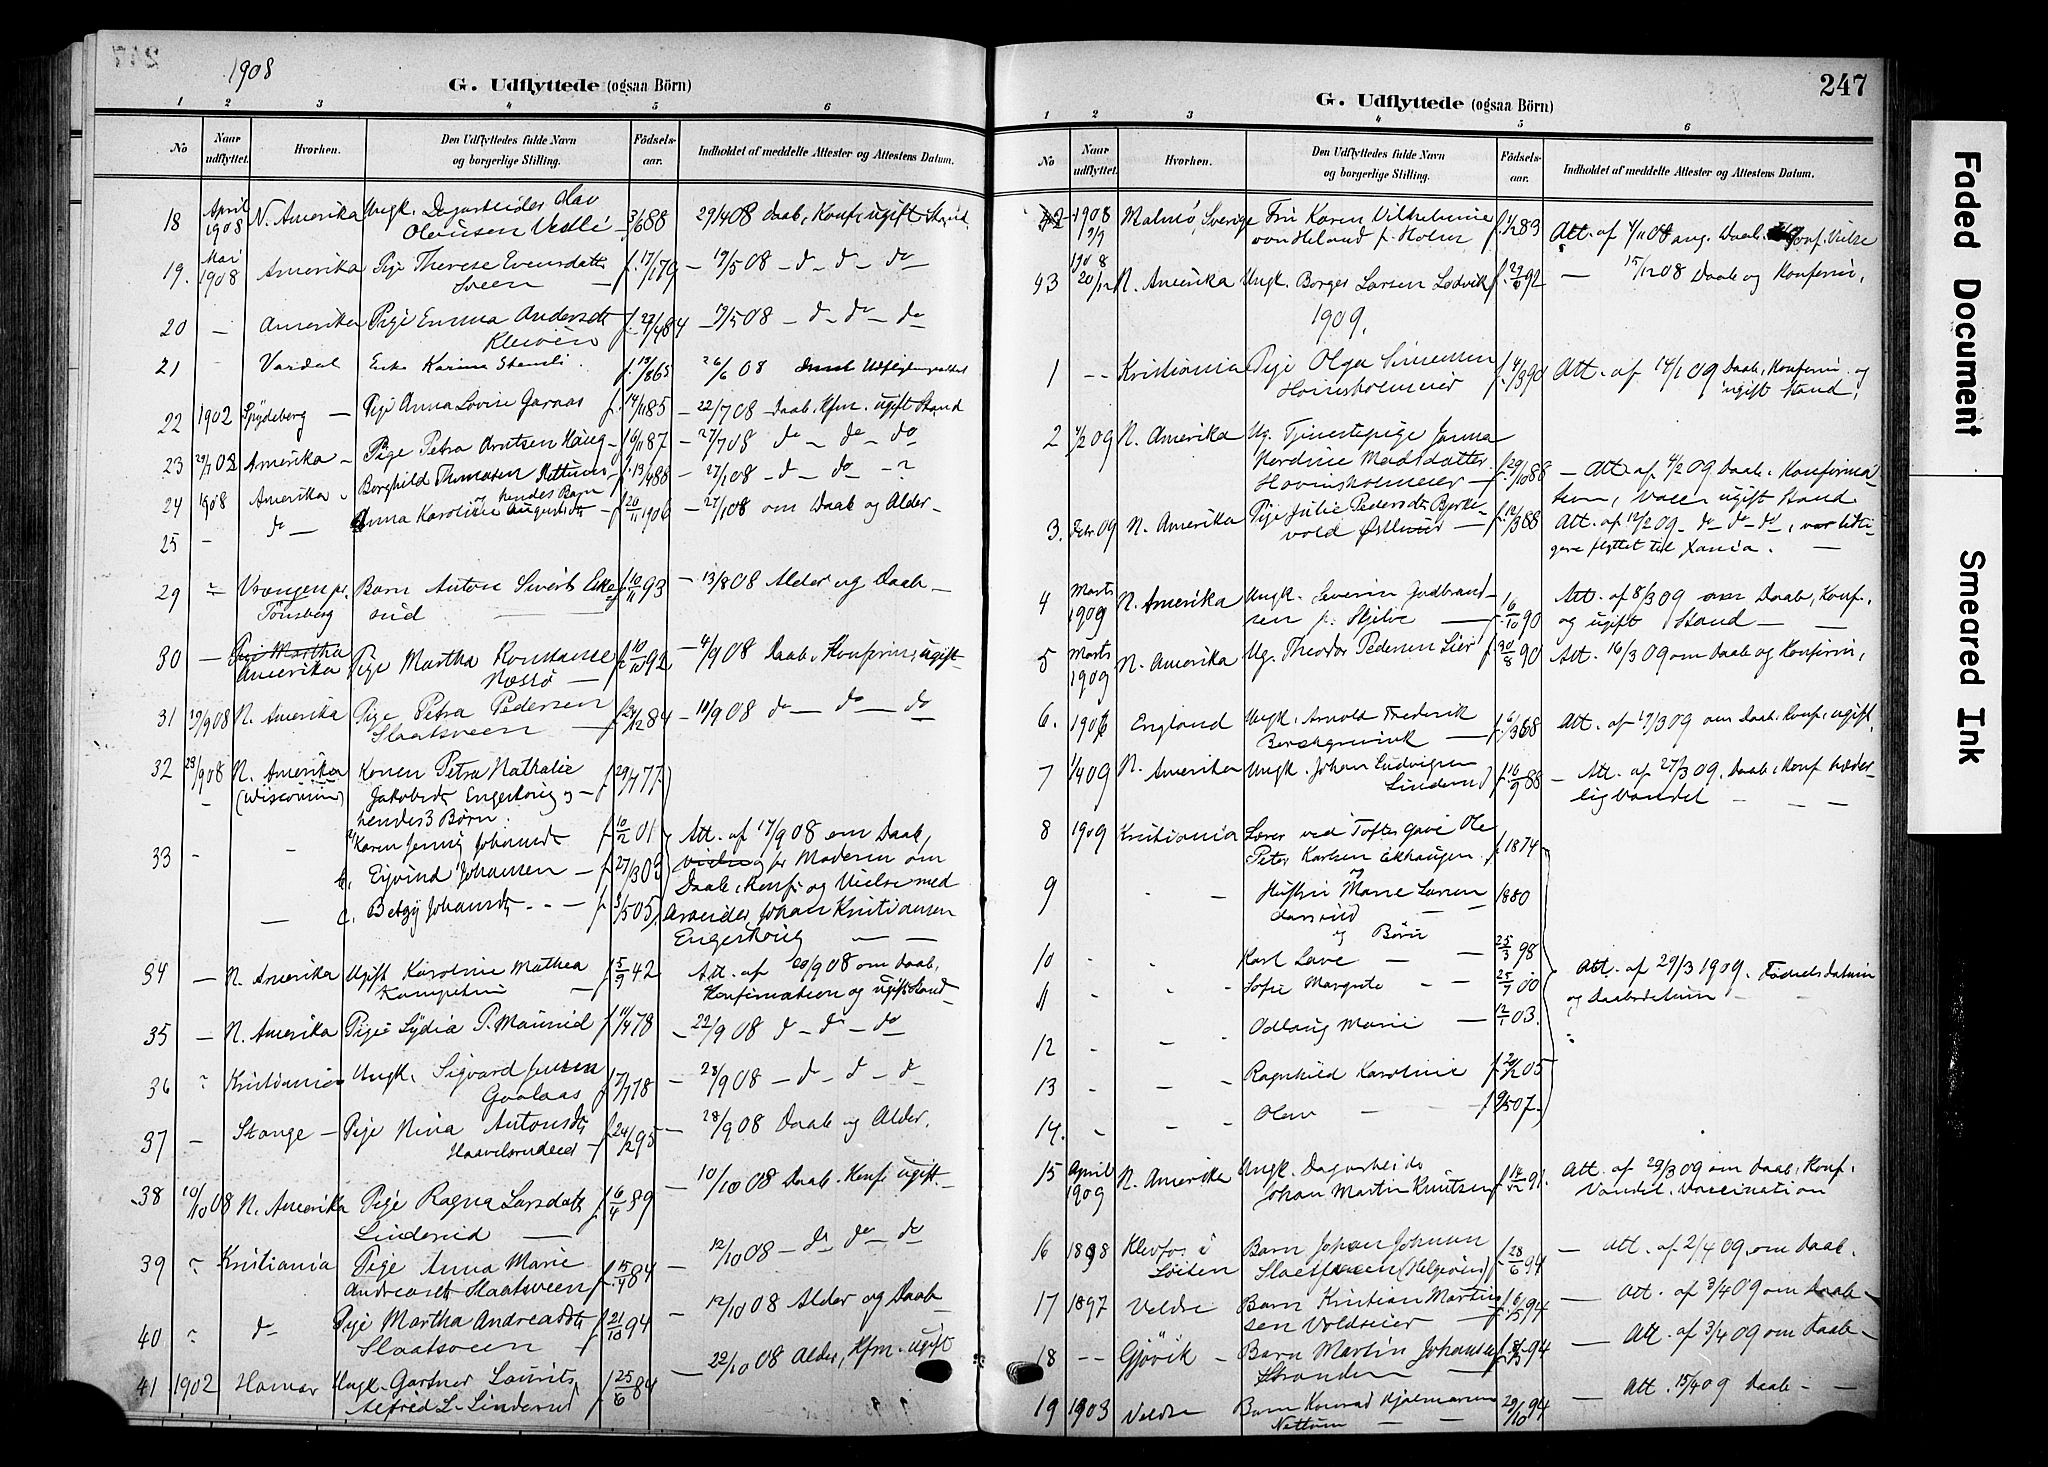 1908
G. Udflyttede (ogsaa Börn)
1 2 3 4 5 6
No
Naar udflyttet.
Hvorhen.
Den Udflyttedes fulde Navn og borgerlige Stilling.
Fødsels-aar.
Indholdet af meddelte Attester og Attestens Datum.
18 April 1908 N. Amerika Ungk. Dagarbeider Olav 3/6 88 29/4 08 Daab, Konf. ugift Stand
Olausen
19. Mai 1908 Amerika Pige Therese Evensdatter f. 17/1 79 – 19/5 08 – d – d – do –
Sveen
20 – Amerika Pige Emma Andersdt f. 29/4 84 – 9/5 08 – d – do – do
21 Vardal Enke Karina f. 13/8 65 26/6 08
22 1902 Spydeberg – Pige Anna Lovise Garaas f. 14/11 85 – 22/7 08 – Daab. Kfm. ugift Stand
23 29/7 02 Amerika – Pige Petra Arntsen Haug – f 6/11 87 – 27/7 08 do – do – do
24 1908 Amerika Borghild Thomasen f. 13/4 88 – 27/1 08 – d – do – ?
og hendes Barn
25 – do – Anna Karoline f 26/11 1906 – 27/1 08 om Daab og Alder –
29 Vrængen pr. Tönsberg Barn Anton Siverts f 10/11 93 – 13/8 08 Alder og Daab –
30 – Pige Martha
Amerika Pige Martha Konstanse f 10/10 92 – 4/9 08 Daab, Konfirm, ugift –
Næssø
31 19/9 08 N. Amerika Pige Petra Pedersen f 12 84 – 19/9 08 do – do – do
Slaatsveen
32 23/9 08 N. Amerika (Wisconsin) Konen Petra Nathalie
Jakobsdt Engeskoug og – f 29/4 77
hendes 3 Børn:
33 – Karen Jenny Johansdt f 10/2 01 Att. af 17/9 08 om Daab,
b. Eyvind Johansen – f 27/3 03 for Moderen om
Daab, Konf. og Vielse med
– c. Betzy Johansdt – – f 5 05 Arbeider Johan Kristiansen
Engeskoug – –
34 – N. Amerika Ugift Karoline Mathea f 5/9 42 Att. af 20/9 08 om Daab,
Konfirmation og ugift Stand –
35 – N. Amerika Pige Lydia P. f 11/4 78 – 22/9 08 d – d – do
36 Kristiania Ungk. Sigvard Jensen f 17/7 78 – 23/9 08 – d – d – d
37 – Stange – Pige Nina Antonsdt f 24/2 95 – 28/9 08 Daab og Alder.
38 10/10 08 N. Amerika Pige Ragna Larsdatt f 6/4 89 – 10/10 08 Daab. Konf. ugift –
Linderud –
39 Kristiania Pige Anna Marie
Andreasdt Slaatsveen f 15/4 84 – 12/10 08 – d – do – do
40 do Pige Martha Andreasdt f 21/10 94 – 12/10 08 Alder og Daab –
Slaatsveen –
41 1902 Hamar Ungk. Gartner Laurits f 25/6 84 – 22/10 08 Alder, Kfm. ugift
Alfred L. Linderud
247
G. Udflyttede (ogsaa Börn)
1 2 3 4 5 6
No
Naar udflyttet.
Hvorhen.
Den Udflyttedes fulde Navn og borgerlige Stilling.
Fødsels-aar.
Indholdet af meddelte Attester og Attestens Datum.
42 1908 9/9 Malmö, Sverige Fru Karen Vilhelmine f. 83 Att. af 4/11 08 ang. Daab Konf. Vielse
43 1908 20/12 N. Amerika Ungk. Borger Larsen f. 92 – 15/12 08 Daab og Konfirm.
1909.
1 –– Kristiania Pige Olga Simensen f. 4/3 90 Att. af 14/1 09 Daab, Konfirm. og
Hovinsholmeier ugift Stand,
2 4/2 09 N. Amerika Ug. Tjenestepige Janna
Nordine Madsdatter
Hovinsholmeier – f. 29/10 88 – Att. af 4/2 09 Daab. Konfirma-
tion, Vacc. ugift Stand
3. Febr. 09 N. Amerika Pige Julie Pedersdt f. 12/3 88 Att. af 12/2 09 – do – do – do, var tidli-
gere flyttet til Xania. –
4 Marts 1909 N. Amerika Ungk. Severin Gudbrand-
sen p. – 6/10 90 Att. af 8/3 09 om Daab, Konf.,
og ugift Stand – –
5 Marts 1909 N. Amerika Ug. Theodor Pedersen Lier f. 30/8 90 Att. 16/3 09 om Daab og Konfirm,
6. 1906 England Ungk. Arnold Frederik f. 6/3 68 Att. af 17/3 09 om Daab. Konf., ugift.
7 1/4 09 N. Amerika Ungk. Johan Ludvigsen f. 16/9 88 – Att. af 27/3 09. Daab, Konf. hæder-
Linderud lig Vandel – – –
8 1909 Kristiania Lærer ved Toftes Gave Ole
Peter Karlsen Ekhaugen f. 1874
og
9 – – Hustru Marie Larsen 1880
og Børn
10 – Karl – – 25/3 98 Att. af 29/3 1909. Fødselsdatum
11 – – Sofie Margrete – – 25/7 00 og Daabsdatum – –
12 – – Odlaug Marie – 12/1 03.
13 – – Ragnhild Karoline f. 20/12 05
14. – – Olav – – f 9/5 07.
15 April 1909 N. Amerika Ungk. Dagarbeider
Johan Martin Knutsen f. 14/12 91. Att. af 29/3 09 om Daab, Konf,
Vandel. Vaccination
16 1898 Klevfos i Løiten Barn Johan Johansen f. 28/6 94 – Att. af 2/4 09 om Daab.
(Helgøen)
17 1897 Veldre Barn Kristian Martin- f. 6/5 94 – Att. af 3/4 09 om Daab –
sen Voldseier –
18 –– Gjøvik – Barn Martin Johansen f. 94 – Att. af 3/4 09 om Daab –
Stranden –
19 1903 Veldre Barn Konrad Hjalmarsen 29/10 94 – Att. 15/4 09 Daab – –
Nettum –
Faded Document
Smeared Ink